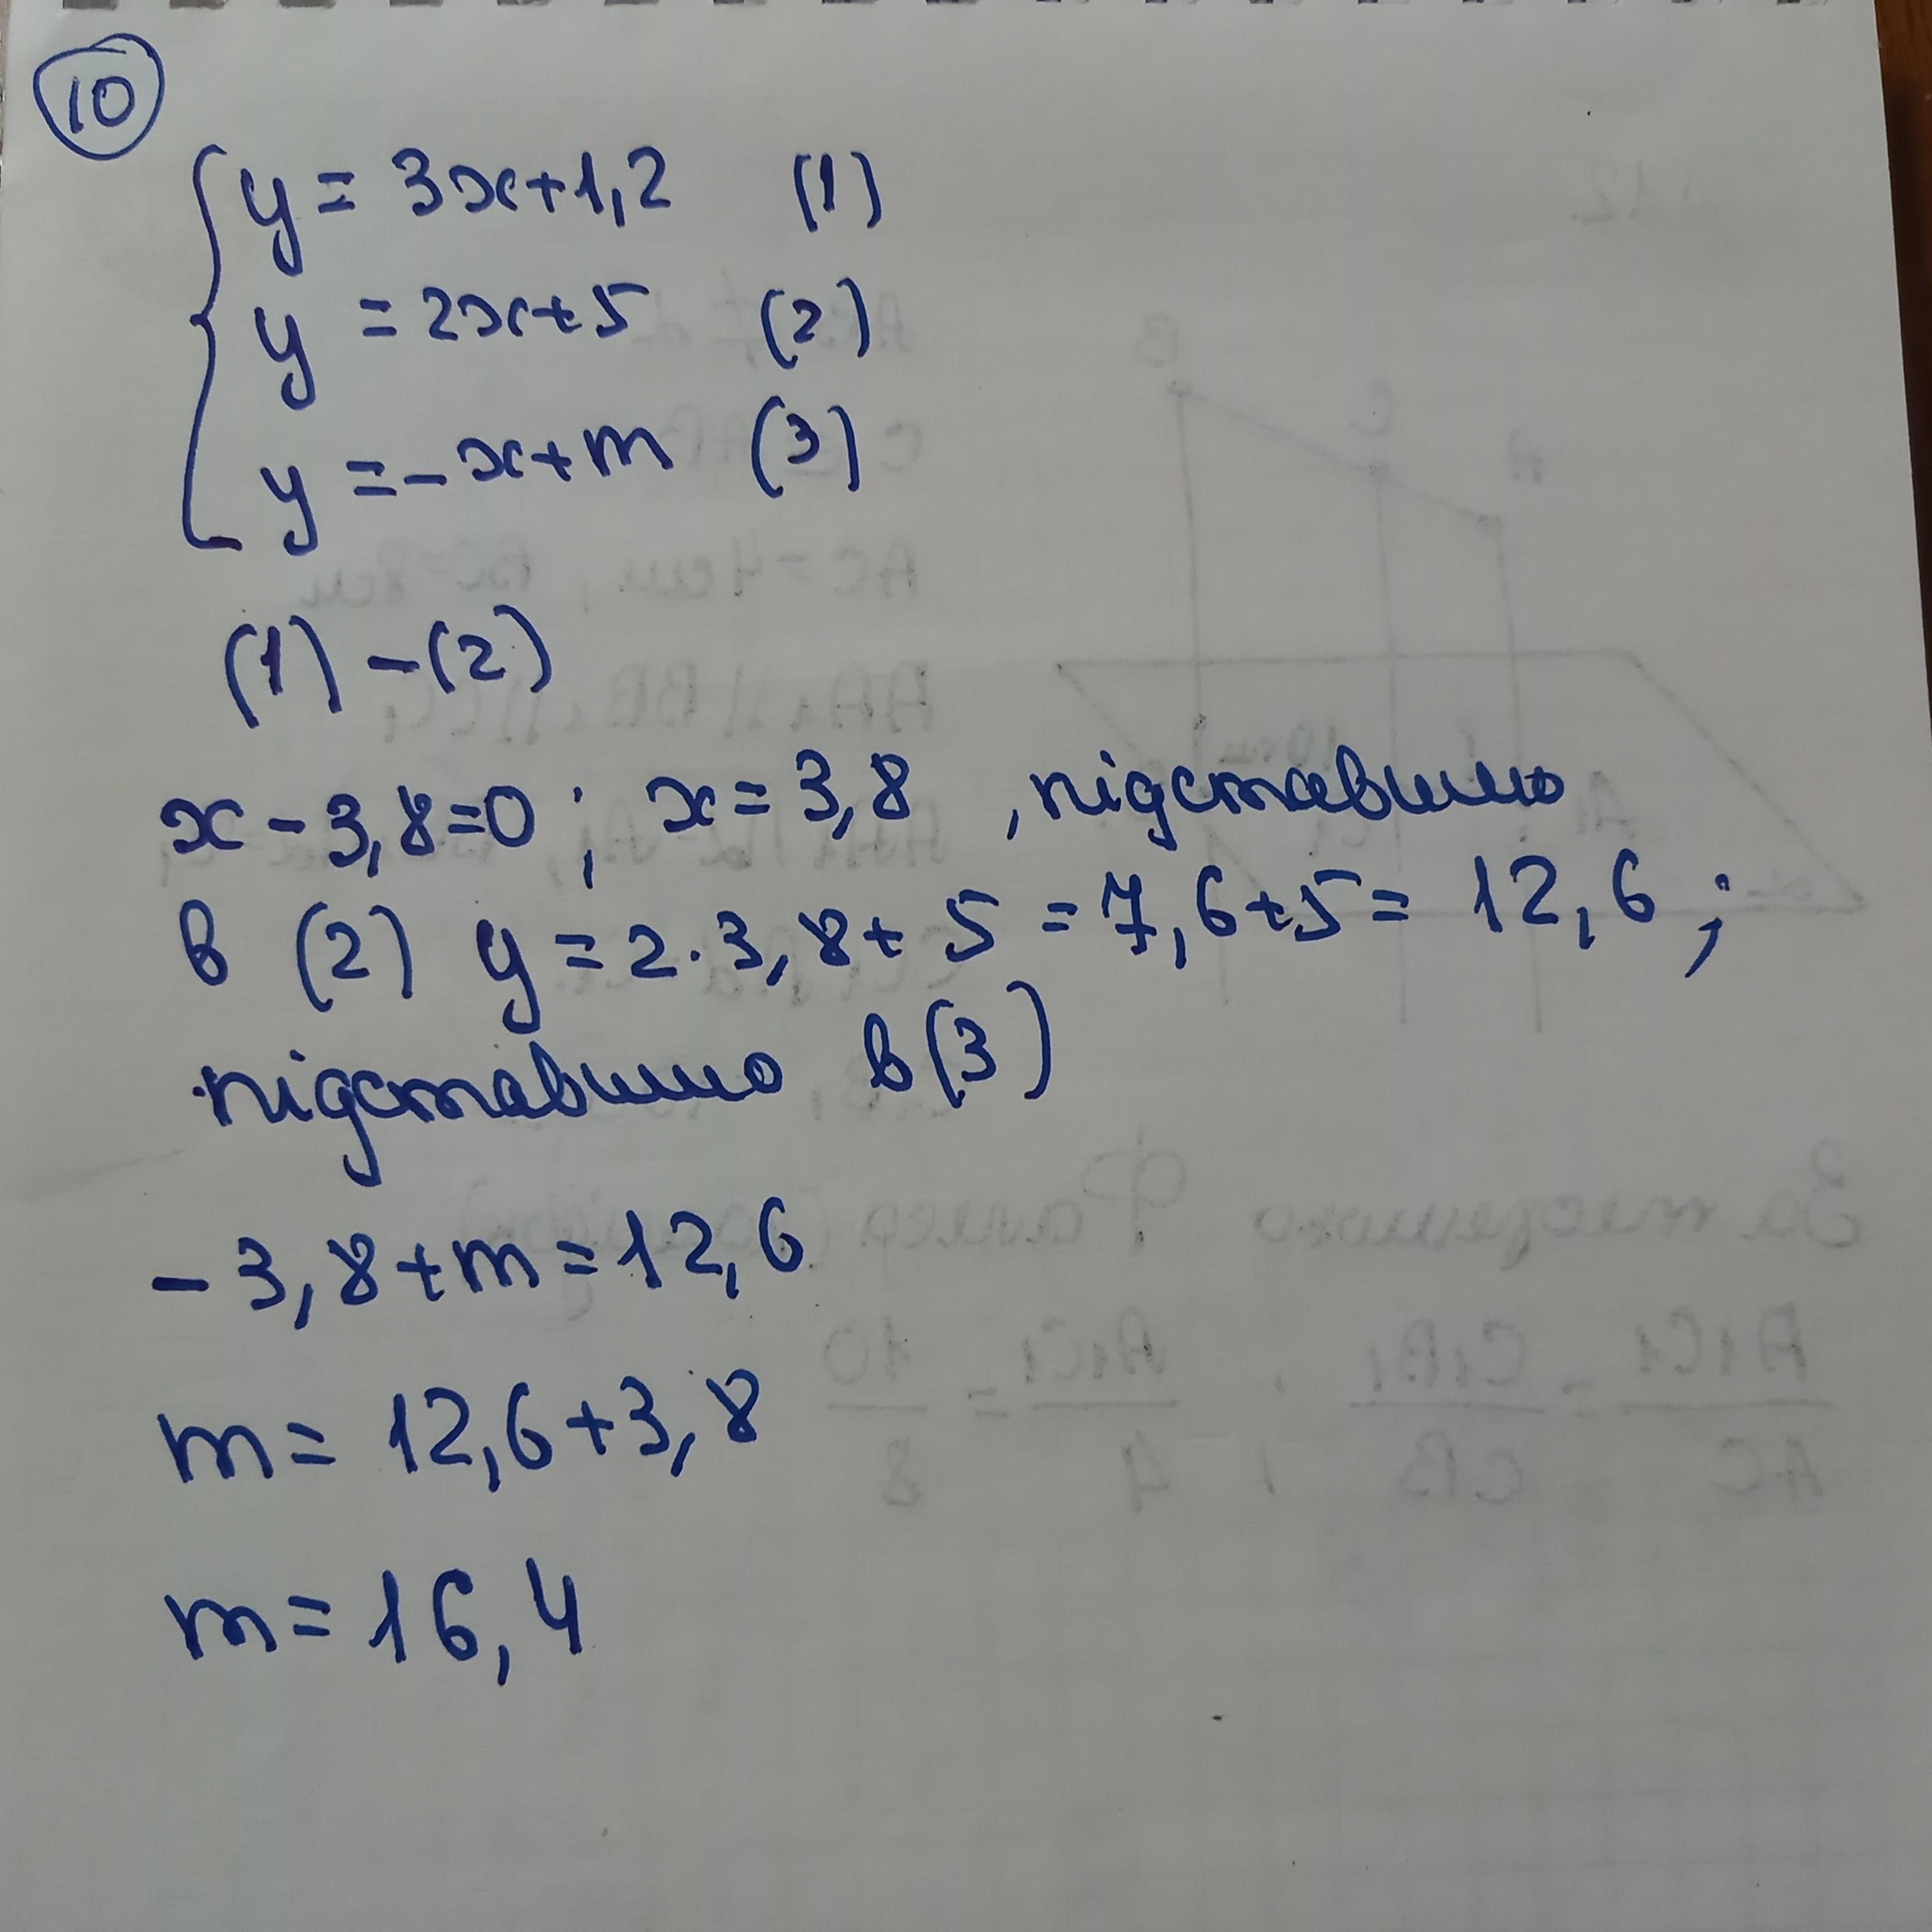 10
y = 3x+1,2 (1)
y = 2x+5 (2)
y = -x+m (3)
(1) -(2)
x - 3,8=0; x = 3,8 , підставимо
в (2) y = 2·3,8+5 = 7,6+5 = 12,6;
підставимо в (3)
- 3,8+m=12,6
m = 12,6+3,8
m = 16,4